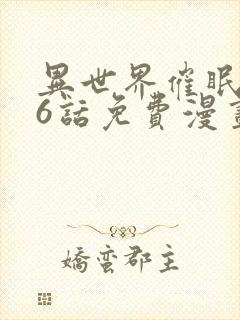 異世界催眠
6話免費漫畫
嬌蠻郡主